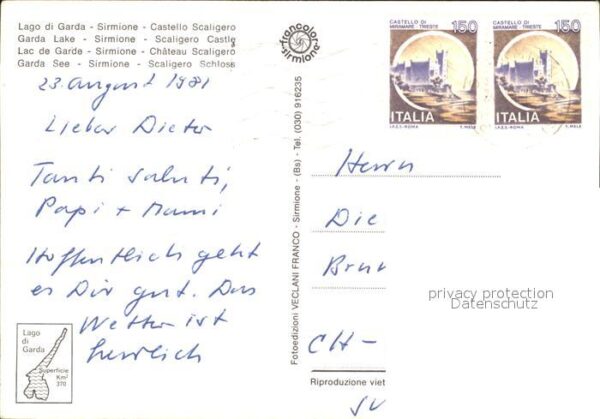 Lago di Garda - Sirmione - Castello Scaligero
Garda Lake - Sirmione - Scaligero Castle
Lac de Garde - Sirmione - Château Scaligero
Garda See - Sirmione - Scaligero Schloss
francolor
Sirmione
23. August 1981
Lieber Dieter
Tanti saluti,
Papi + Mami
Hoffentlich geht
es Dir gut. Das
Wetter ist
herrlich
Lago
di
Garda
Superficie
Km²
370
Fotoedizioni VECLANI FRANCO - Sirmione - (Bs) - Tel. (030) 916235
CASTELLO DI
MIRAMARE - TRIESTE
150
ITALIA
I.P.Z.S.-ROMA
T. MELE
CASTELLO DI
MIRAMARE - TRIESTE
150
ITALIA
I.P.Z.S.-ROMA
T. MELE
Herrn
Die
CH-
privacy protection
Datenschutz
Riproduzione viet